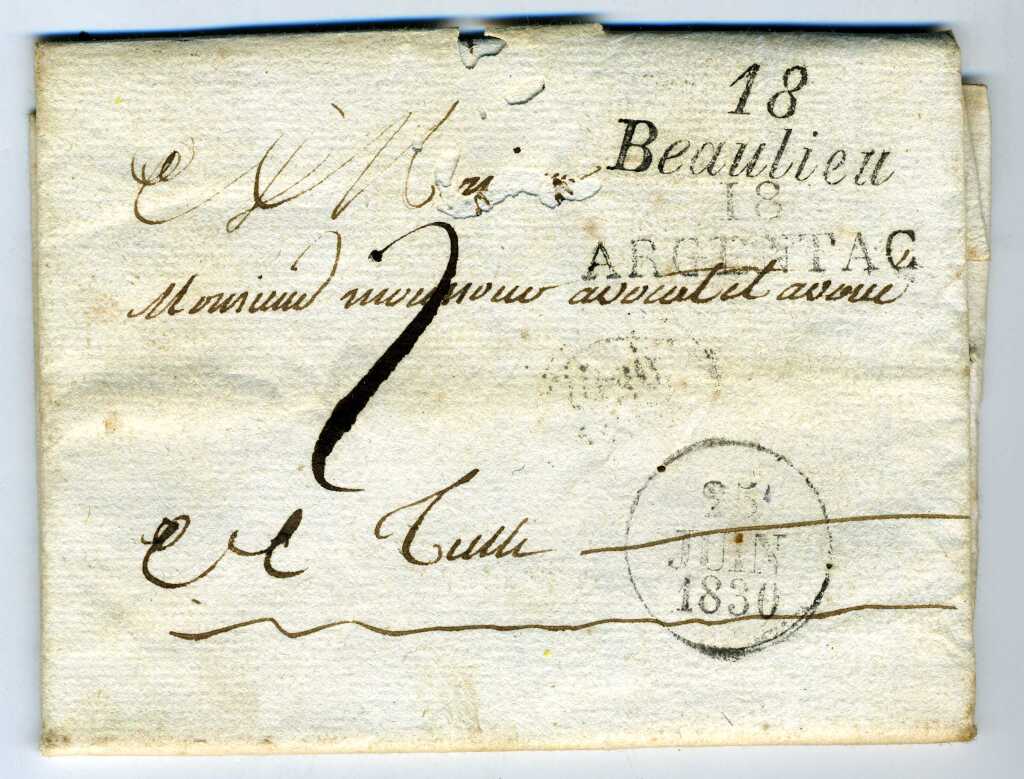 18
Beaulieu
18
ARGENTAC
A
Monsieur avocat et avoué
2
A Tulle
25
JUIN
1830